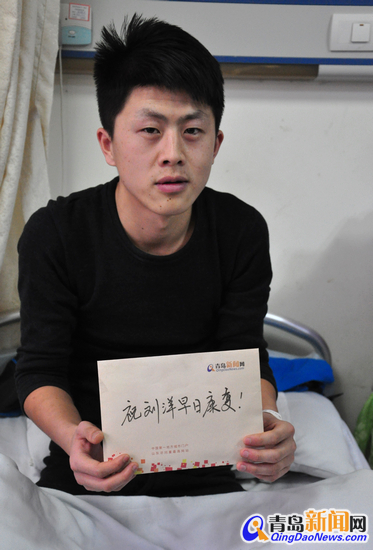 青岛新闻网
QingDaoNews.com
祝刘洋早日康复!
青岛新闻网
QingDaoNews.com